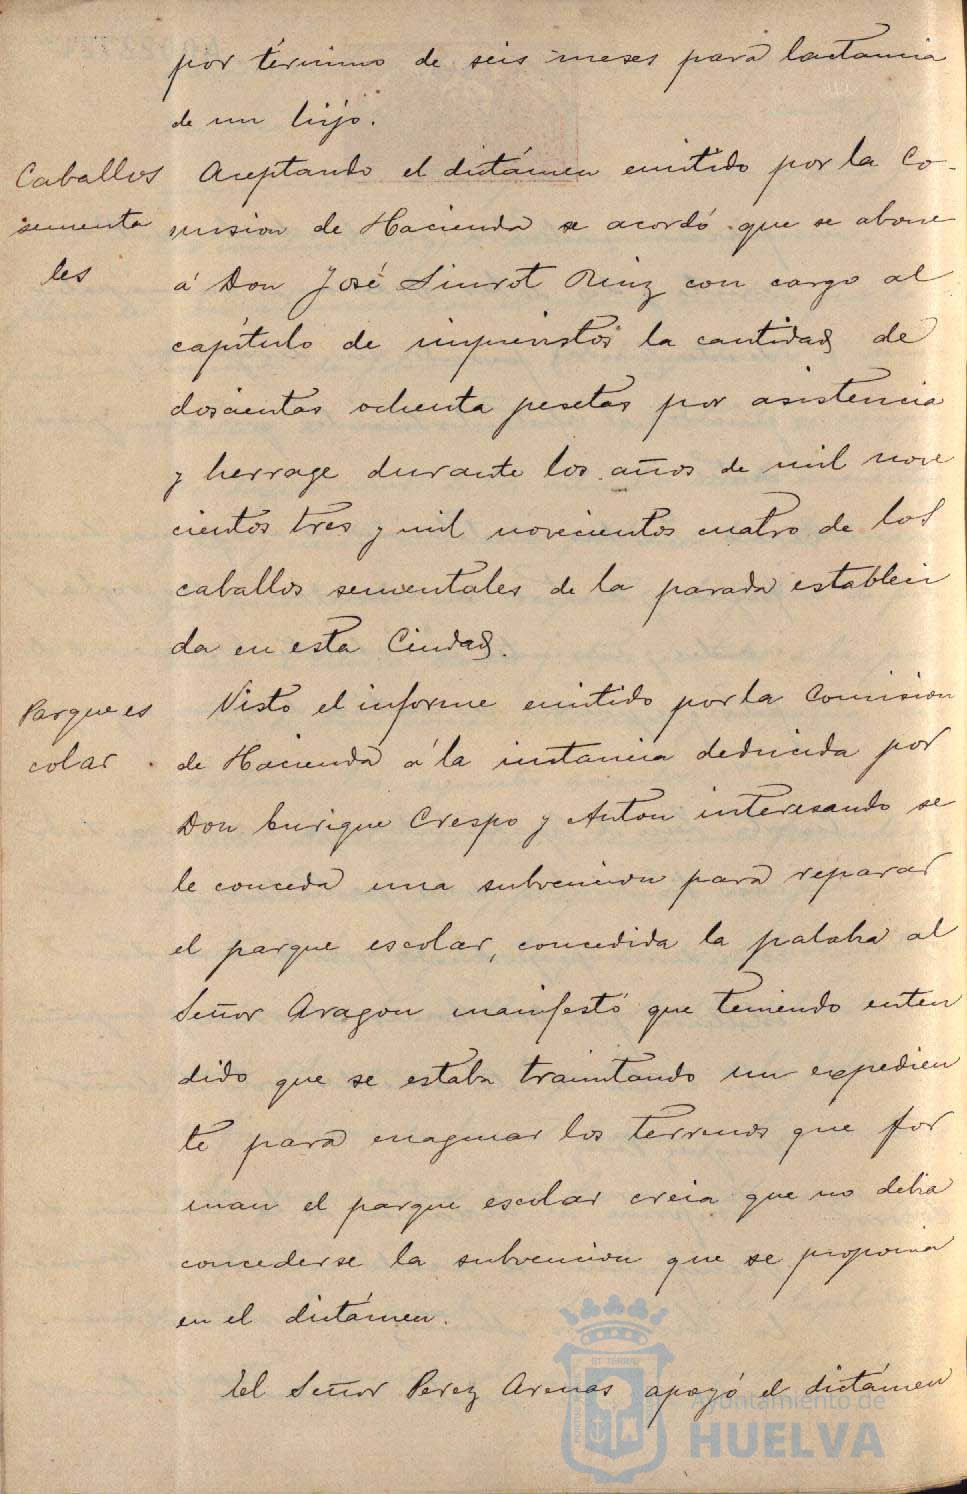 por término de seis meses para lactancia
de un hijo.
Caballos
sementa
les
Aceptando el dictámen emitido por la Co-
mision de Hacienda se acordó que se abone
á Don José Siurot Ruiz con cargo al
capítulo de imprevistos la cantidad de
doscientas ochenta pesetas por asistencia
y herrage durante los años de mil nove
cientos tres y mil novecientos cuatro de los
caballos sementales de la parada estableci
da en esta Ciudad.
Parque es
colar
Visto el informe emitido por la Comision
de Hacienda á la instancia deducida por
Don Enrique Crespo y Anton interesando se
le conceda una subvencion para reparar
el parque escolar, concedida la palabra al
Señor Aragon manifestó que teniendo enten
dido que se estaba tramitando un expedien
te para enagenar los terrenos que for
man el parque escolar creia que no debia
concederse la subvencion que se proponia
en el dictámen.
El Señor Perez Arenas apoyó el dictámen
Ayuntamiento de
HUELVA